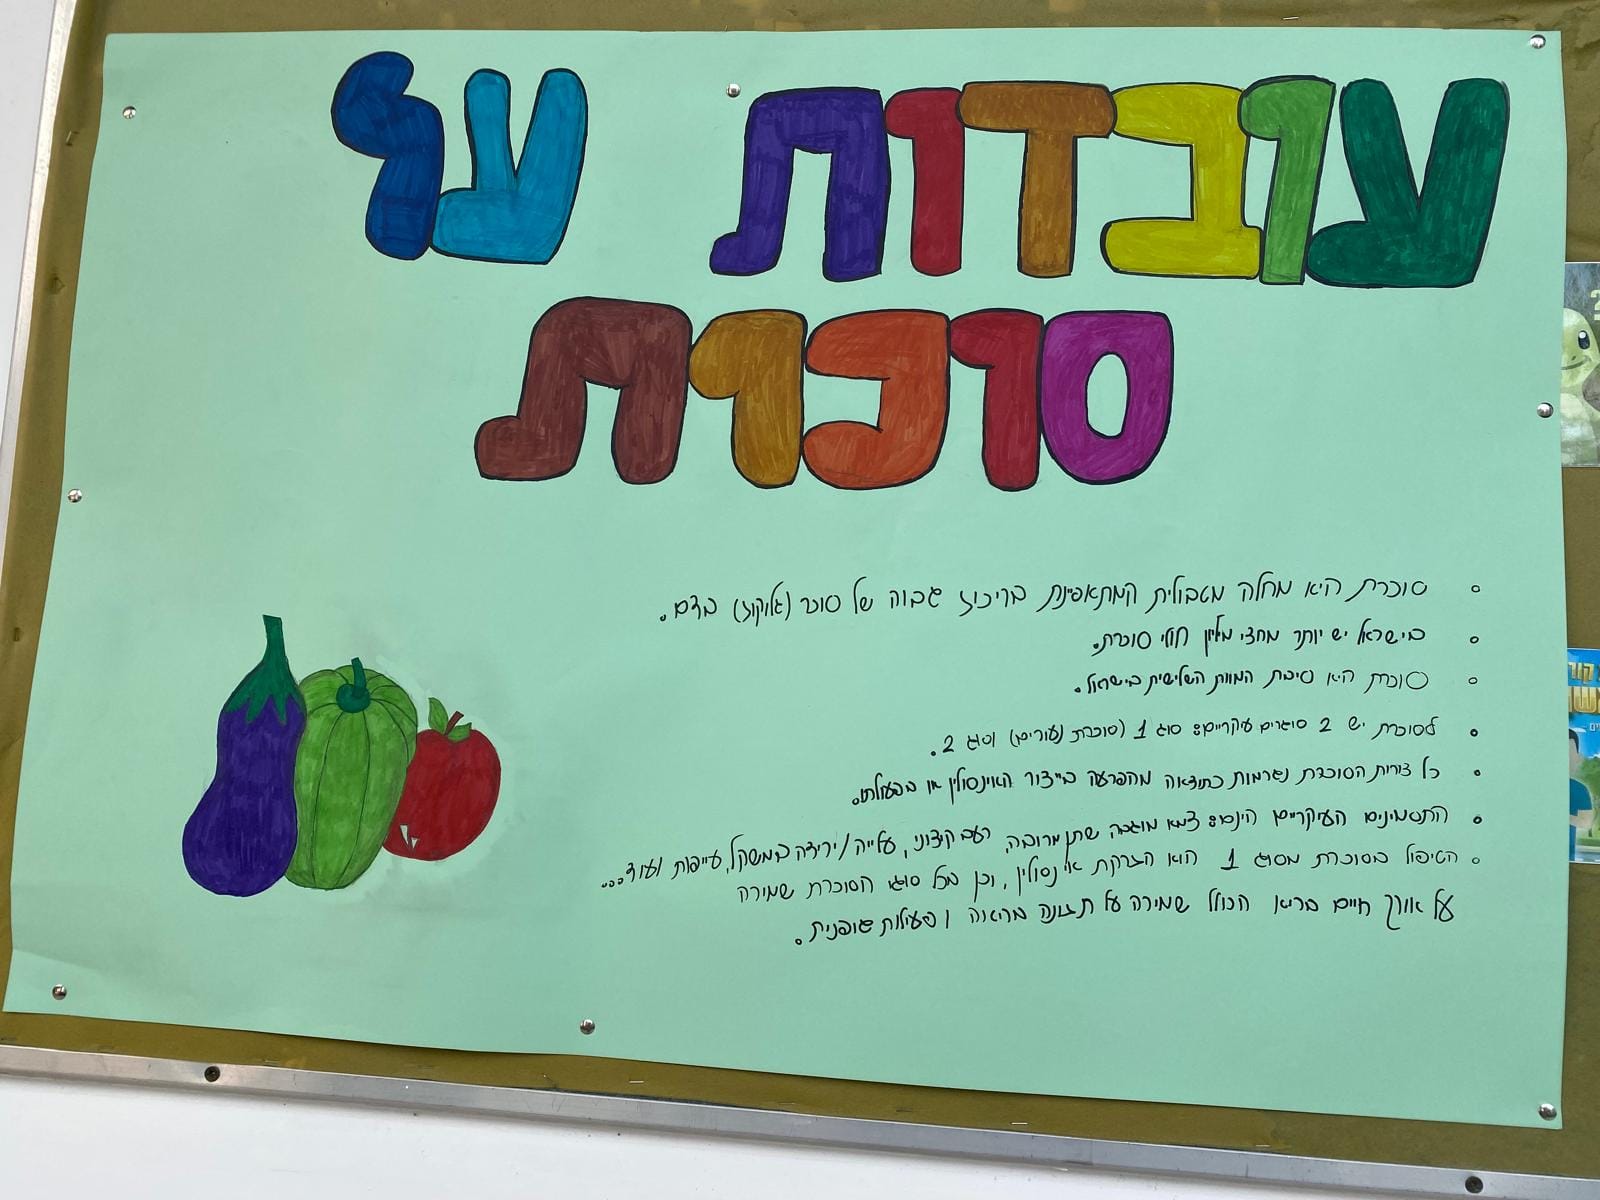 עובדות על
סוכרת
סוכרת היא מחלה מטבולית המתאפיינת בריכוז גבוה של סוכר (גלוקוז) בדם.
בישראל יש יותר מחצי מליון חולי סוכרת.
סוכרת היא סיבת המוות השלישית בישראל.
לסוכרת יש 2 סוגרים עיקריים: סוג 1 (סוכרת נעורים) וסוג 2.
כל צורות הסוכרת נגרמות כתוצאה מהפרעה בייצור האינסולין או בפעולתו.
התסמינים העיקריים הינם: צמא מוגבר, שתן מרובה, רעב קיצוני, עלייה / ירידה במשקל, עייפות ועוד...
הטיפול בסוכרת מסוג 1 הוא הזרקת אינסולין, וכן בכל סוגי הסוכרת שמירה
על אורך חיים בריא הכולל שמירה על תזונה בריאה ופעילות גופנית.